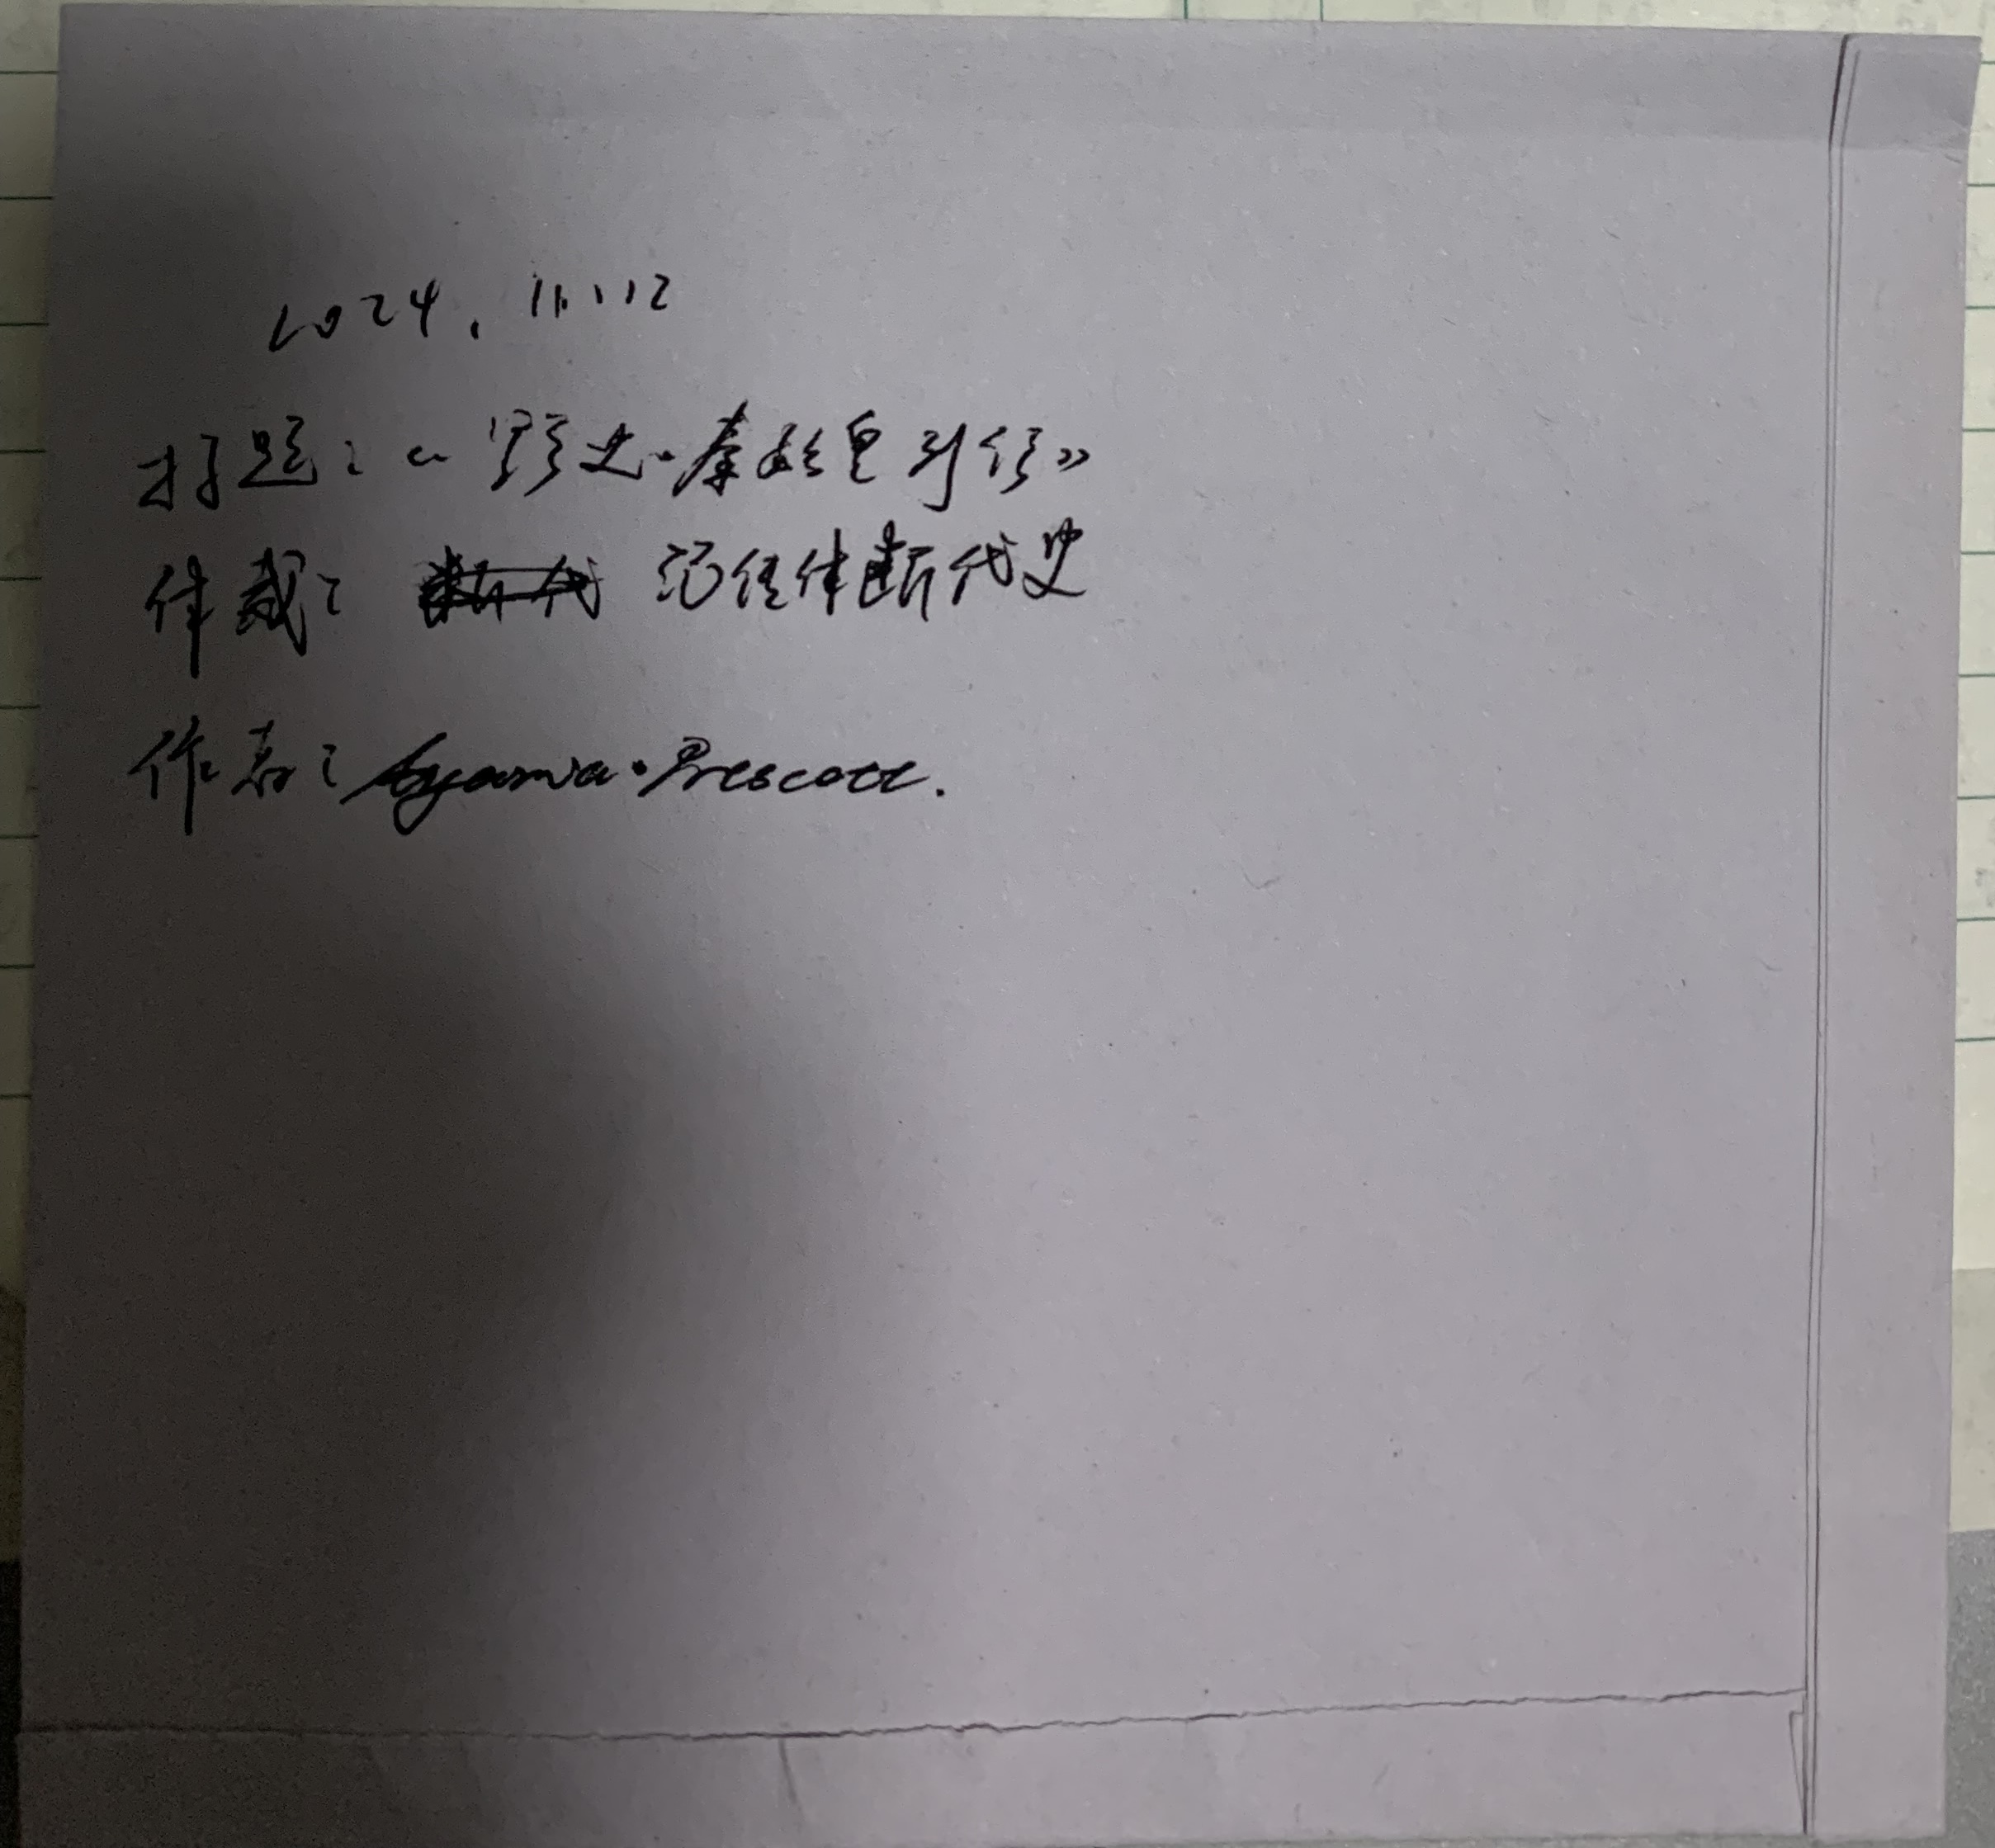 2024.11.12
标题:《野史·秦始皇列传》
体裁: 记传体断代史
作者: Prescott.